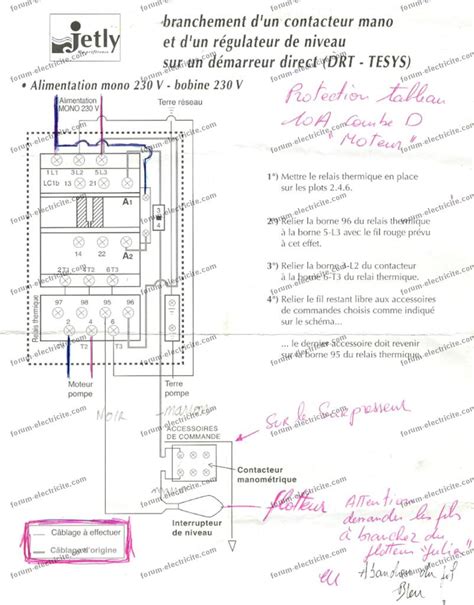 Jetly
branchement d'un contacteur mano
et d'un régulateur de niveau
sur un démarreur direct (DRT - TESYS)
• Alimentation mono 230 V - bobine 230 V
Alimentation
MONO 230 V
Terre réseau
Protection tableau
10A Courbe D
"Moteur"
1 L1
3 L2
5 L3
LC1b
13
21
A1
3
4
14
22
A2
2 T1
4 T2
6 T3
Relais thermique
97
98
95
96
2
4
6
T2
T3
Moteur
pompe
Terre
pompe
1°) Mettre le relais thermique en place
sur les plots 2.4.6.
2°) Relier la borne 96 du relais thermique
à la borne 5-L3 avec le fil rouge prévu
à cet effet.
3°) Relier la borne 3-L2 du contacteur
à la borne 6-T3 du relais thermique.
4°) Relier le fil restant libre aux accessoires
de commandes choisis comme indiqué
sur le schéma...
... le dernier accessoire doit revenir
sur la borne 95 du relais thermique.
NOIR
marron
ACCESSOIRES
DE COMMANDE
Sur le Surpresseur
Contacteur
manométrique
marron
Interrupteur
de niveau
flotteur
Attention
demander les fils
à brancher du
flotteur "Julien"
Abandonner un fil
Bleu
Câblage à effectuer
Câblage d'origine
forum-electricite.com
1